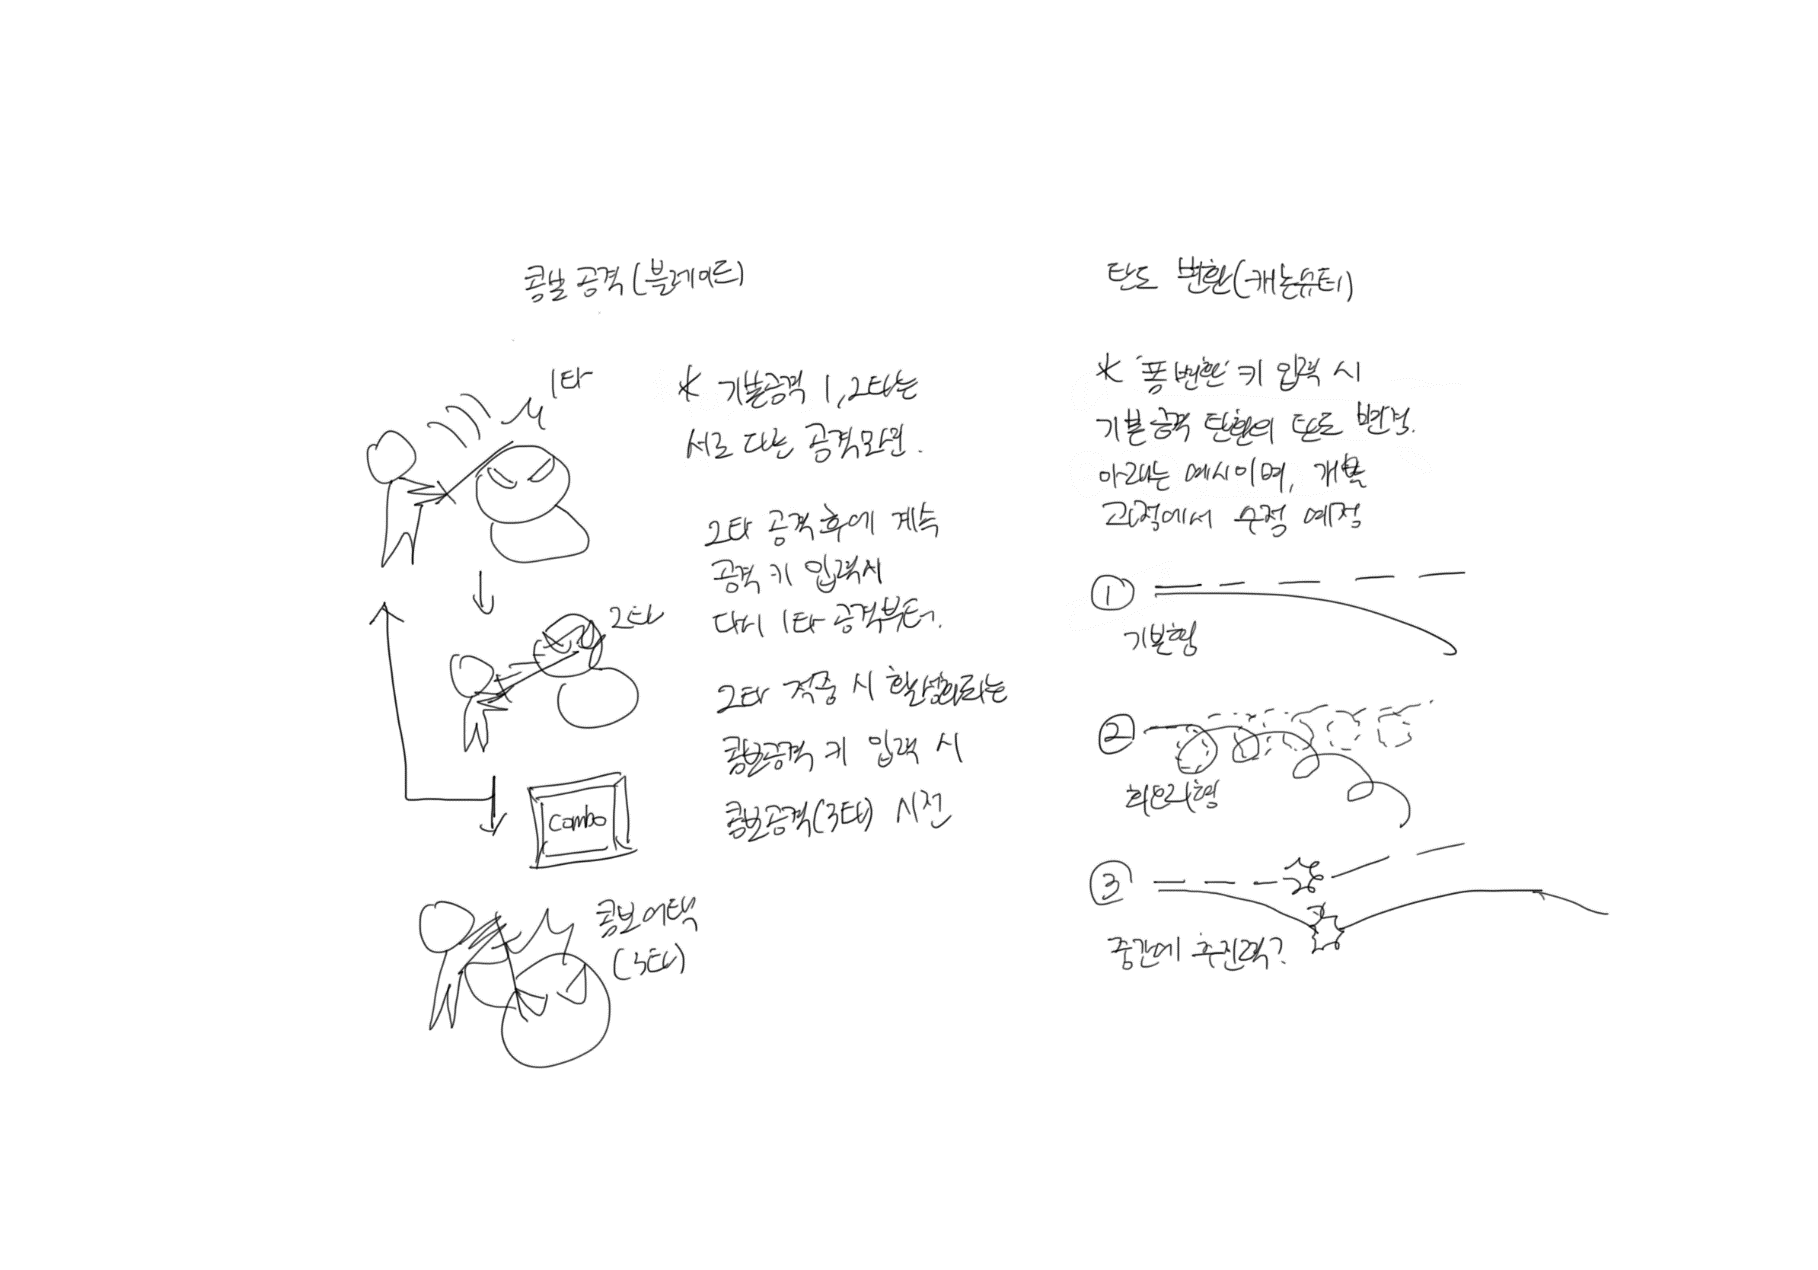 콤보 공격(블레이드)
1타
* 기본공격 1, 2타는
서로 다른 공격모션.
2타 공격 후에 계속
공격 키 입력시
다시 1타 공격부터.
2타
2타 적중 시 활성화되는
콤보공격 키 입력 시
콤보공격(3타) 시전
Combo
콤보어택
(3타)
탄도 변환(캐논슈터)
* '폼변환' 키 입력 시
기본공격 탄환의 탄도 변경.
아래는 예시이며, 개발
과정에서 수정 예정
① 기본형
② 회오리형
③ 중간에 추진력?